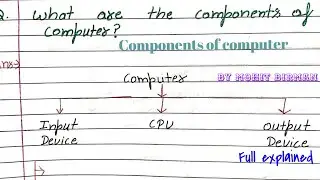 Q. What are the components of
Computer?
Components of computer
Ans:-
Computer
BY MOHIT BIRMAN
Input CPU Output
Device Device
Full explained